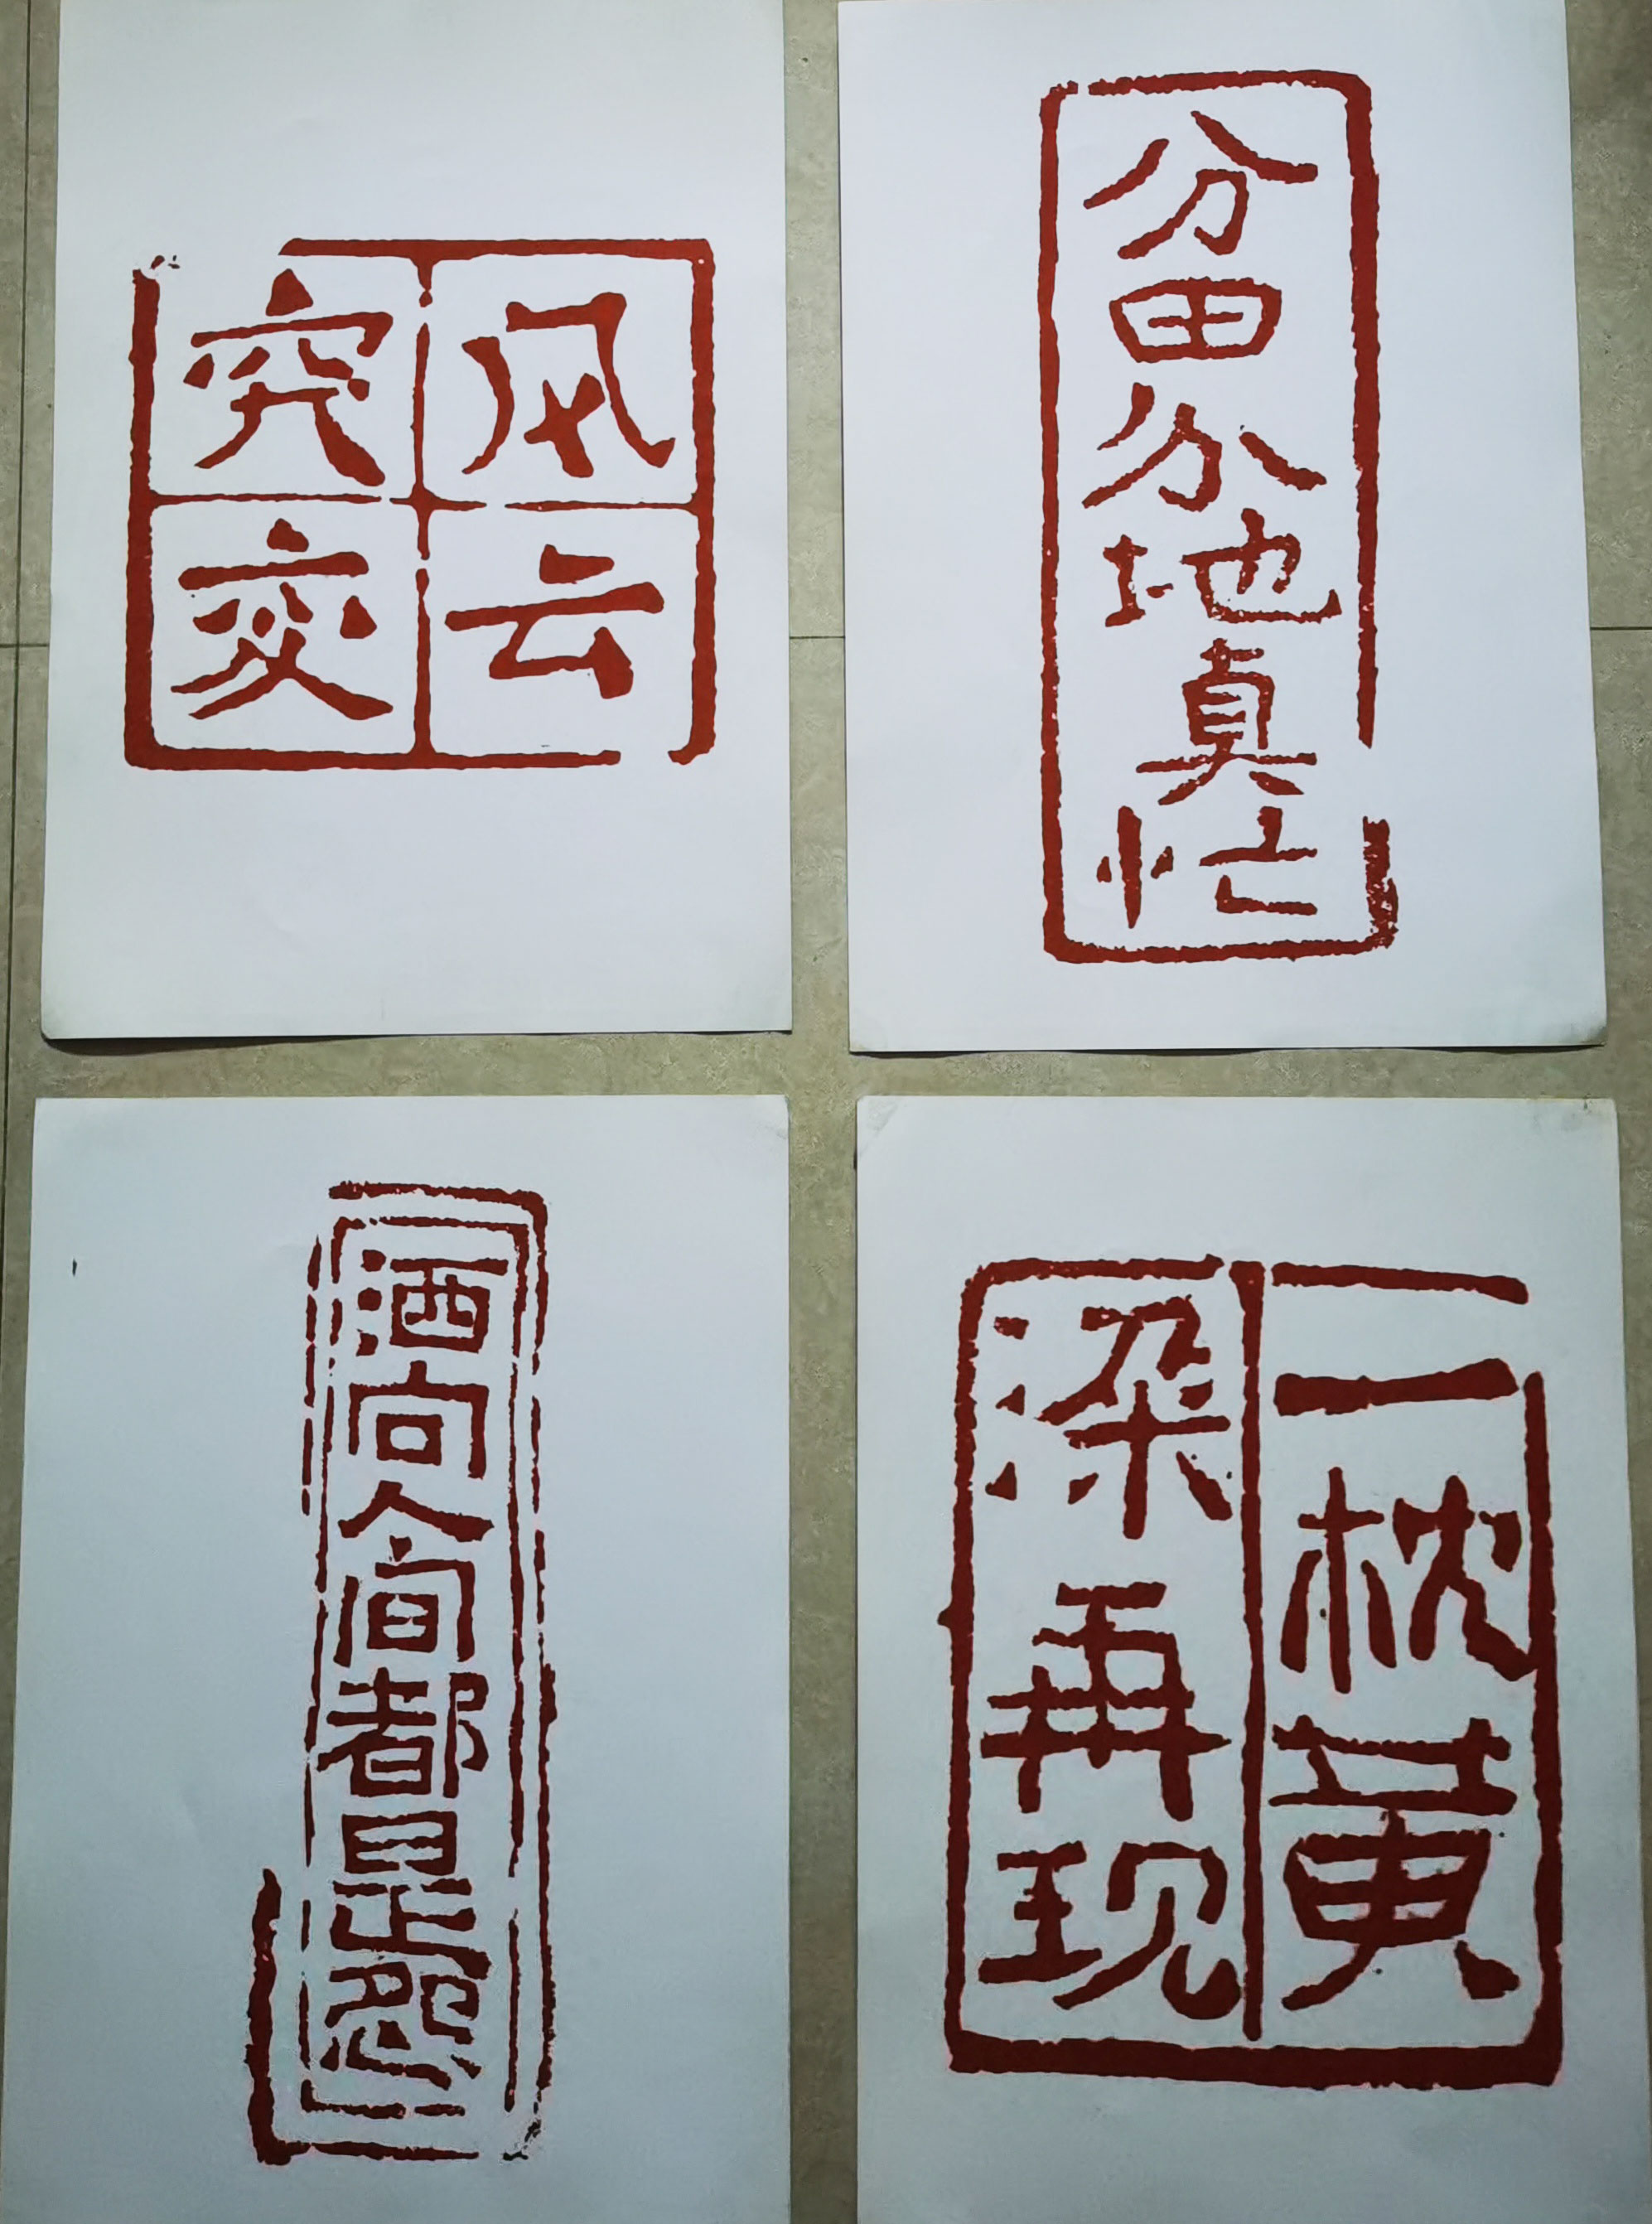 风云
突变
分田分地真忙
洒向人间都是怨
一枕黄
粱再现